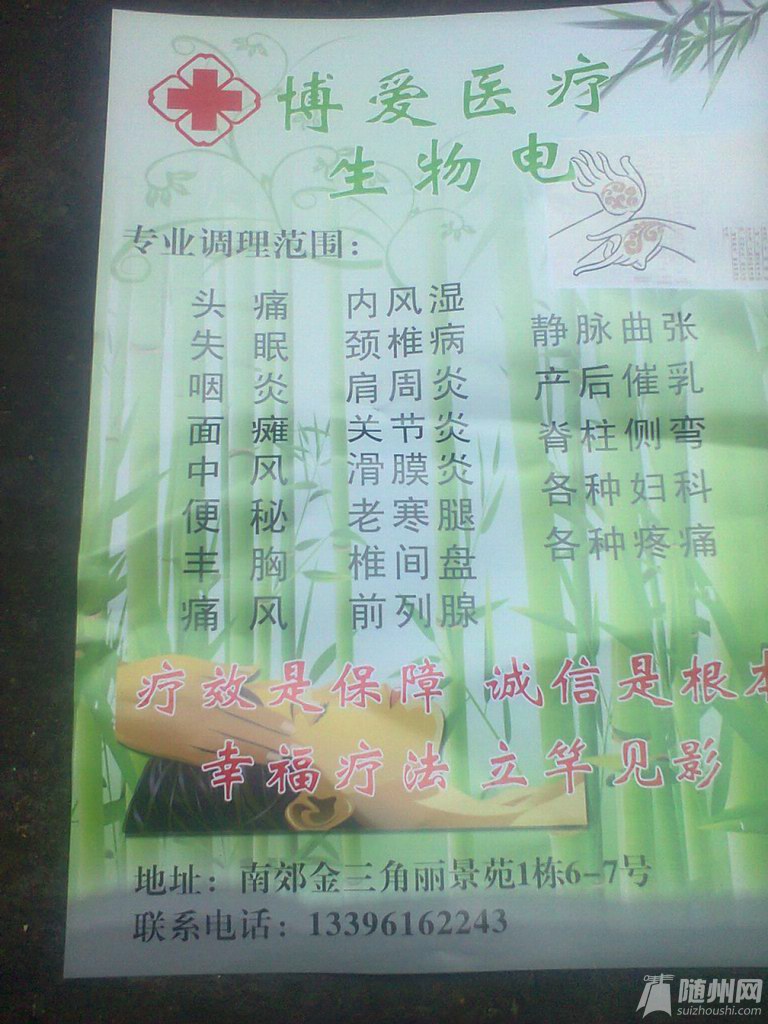 博爱医疗
生物电
专业调理范围：
头痛
失眠
咽炎
面瘫
中风
便秘
丰胸
痛风
内风湿
颈椎病
肩周炎
关节炎
滑膜炎
老寒腿
椎间盘
前列腺
静脉曲张
产后催乳
脊柱侧弯
各种妇科
各种疼痛
疗效是保障 诚信是根本
幸福疗法 立竿见影
地址：南郊金三角丽景苑1栋6-7号
联系电话：13396162243
随州网
suizhoushi.com